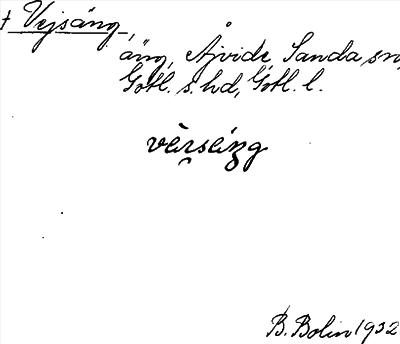 † Vejsäng,
äng, Åjvide, Sanda sn,
Gotl. s. hd, Gotl. l.
vèrséng
B. Bolin 1932